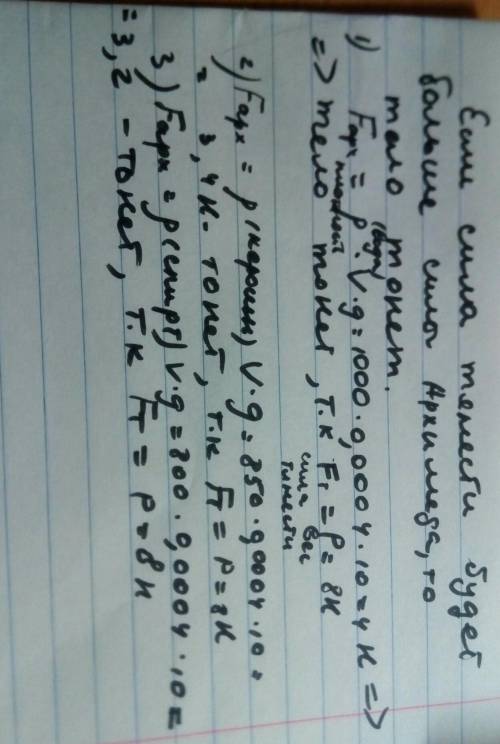 Если сила тяжести будет
больше силы Архимеда, то
тело тонет.
1) Fарх = ρ(воды) · V · g = 1000 · 0,0004 · 10 = 4 Н =>
плотность
=> тело тонет, т.к Fт = P = 8Н
сила тяжести вес
2) Fарх = ρ(керосин) V · g = 850 · 0,0004 · 10 =
= 3,4Н - тонет, т.к Fт = P = 8Н
3) Fарх = ρ(спирт) V · g = 800 · 0,0004 · 10 =
= 3,2 - тонет, т.к Fт = P = 8Н